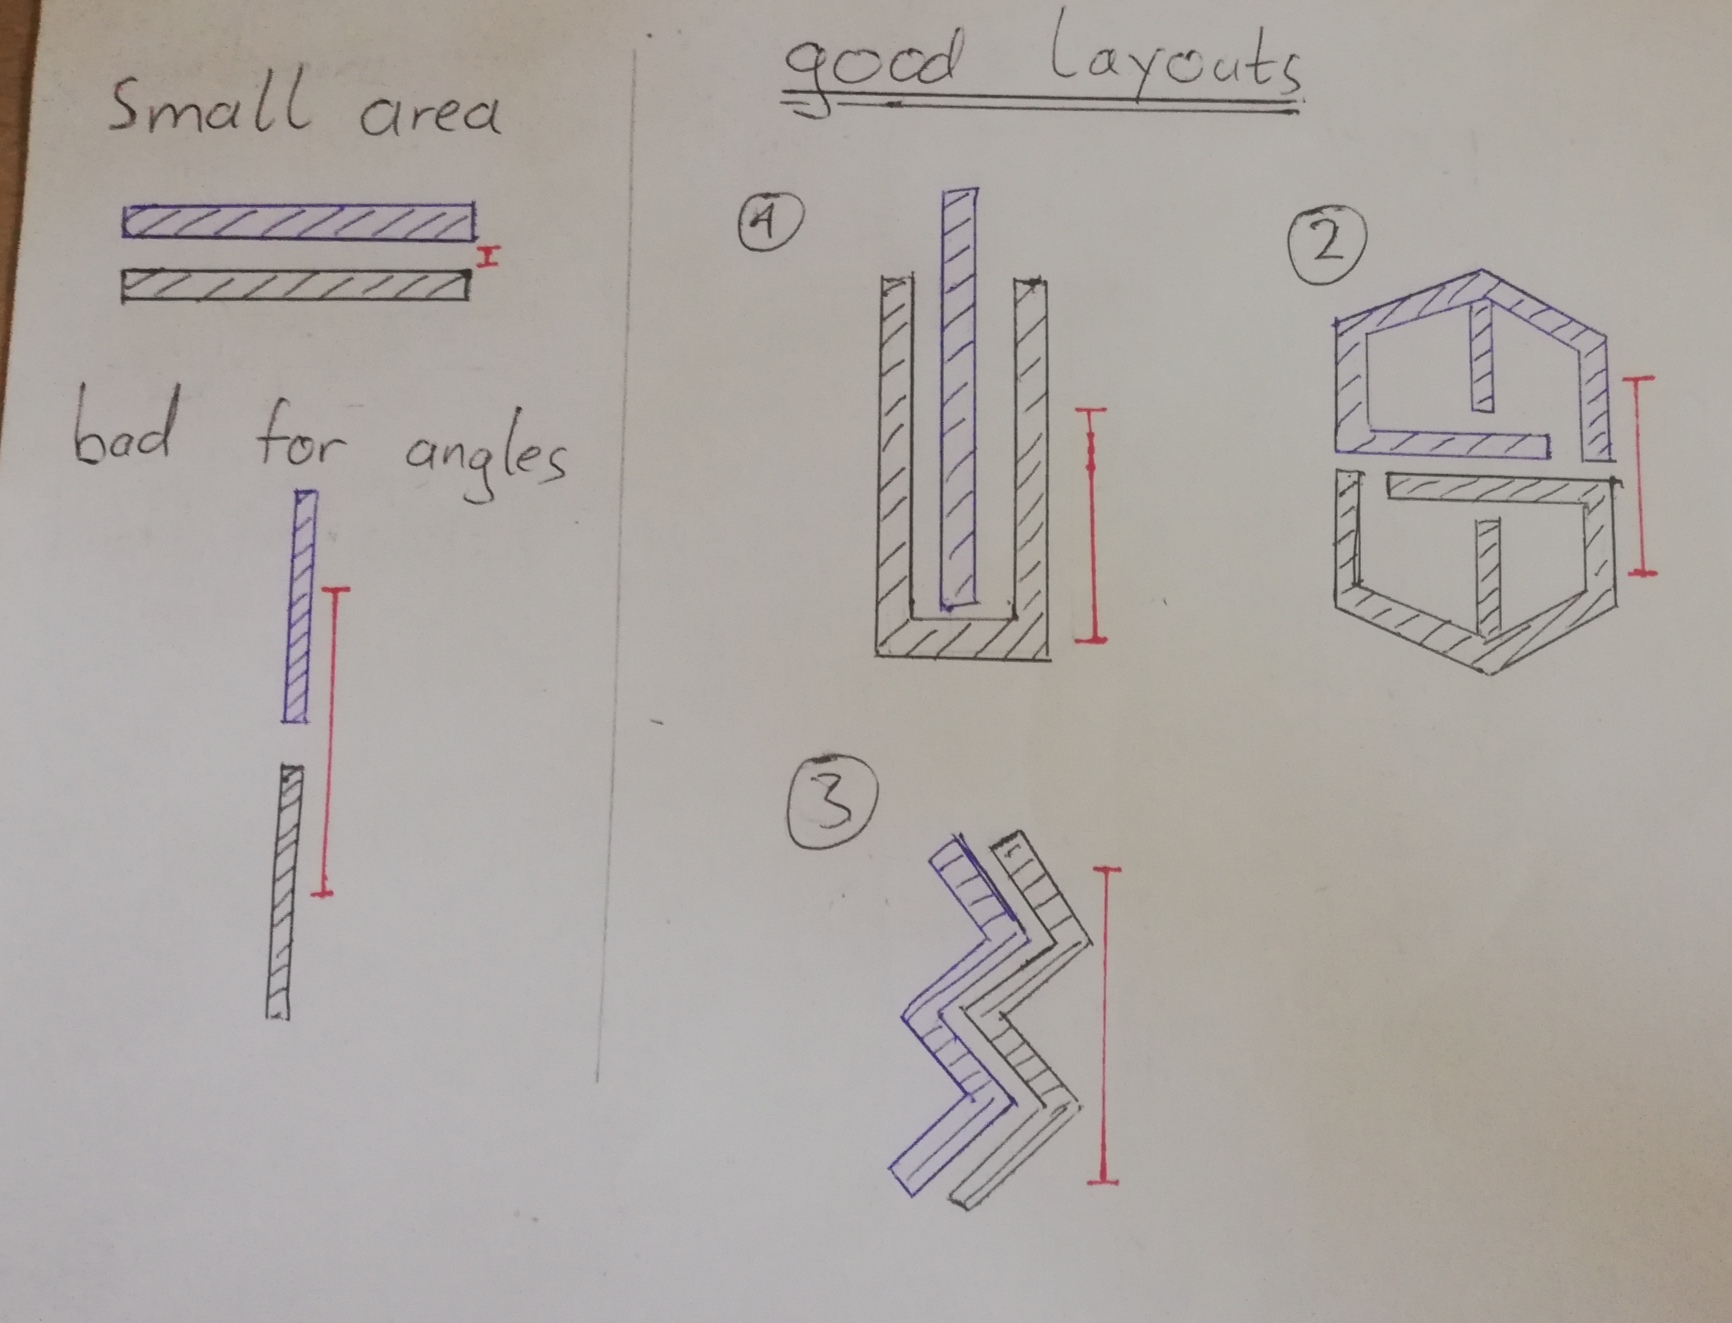 Small area
bad for angles
good layouts
1
2
3